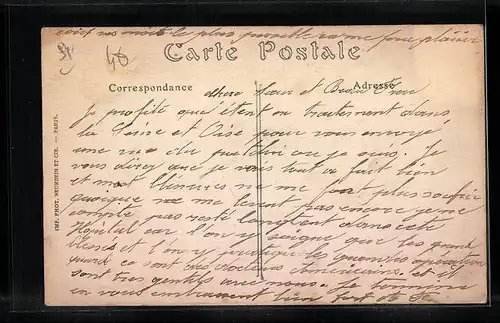 écrit nos mots le plus possible ça me fera plaisir
54 46
Carte Postale
Correspondance
Adresse
Chère Sœur et Beau Frère
Je profite que étant en traitement dans
la Seine et Oise pour vous envoyé
une vue du patelin ou je suis. Je
vous dirai que je vais tout a fait bien
et mes blessures ne me font plus souffrir
quoique ne me levant pas encore je ne
compte pas resté longtemp dans cete
Hôpital car l'on n'y soigne que les grand
blessés et l'on y pratique les grandes opération
quand ce sont des docteurs américains et il
sont tres gentils avec nous. Je termine
en vous embrassant bien fort
IMP. PHOT. NEURDEIN ET CIE. — PARIS.